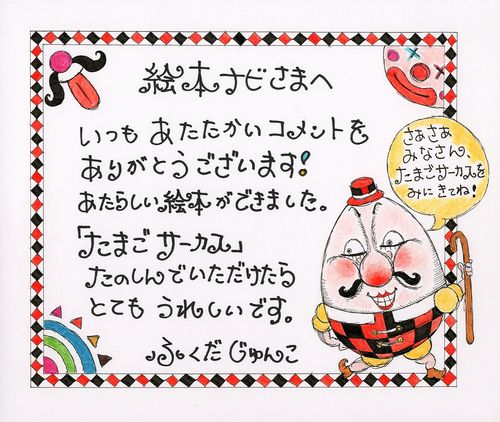 絵本ナビさまへ
いつも あたたかいコメントを
ありがとうございます!
あたらしい絵本ができました。
「たまごサーカス」
たのしんでいただけたら
とても うれしいです。
ふくだじゅんこ
さあさあ
みなさん、
たまごサーカスを
みにきてね!